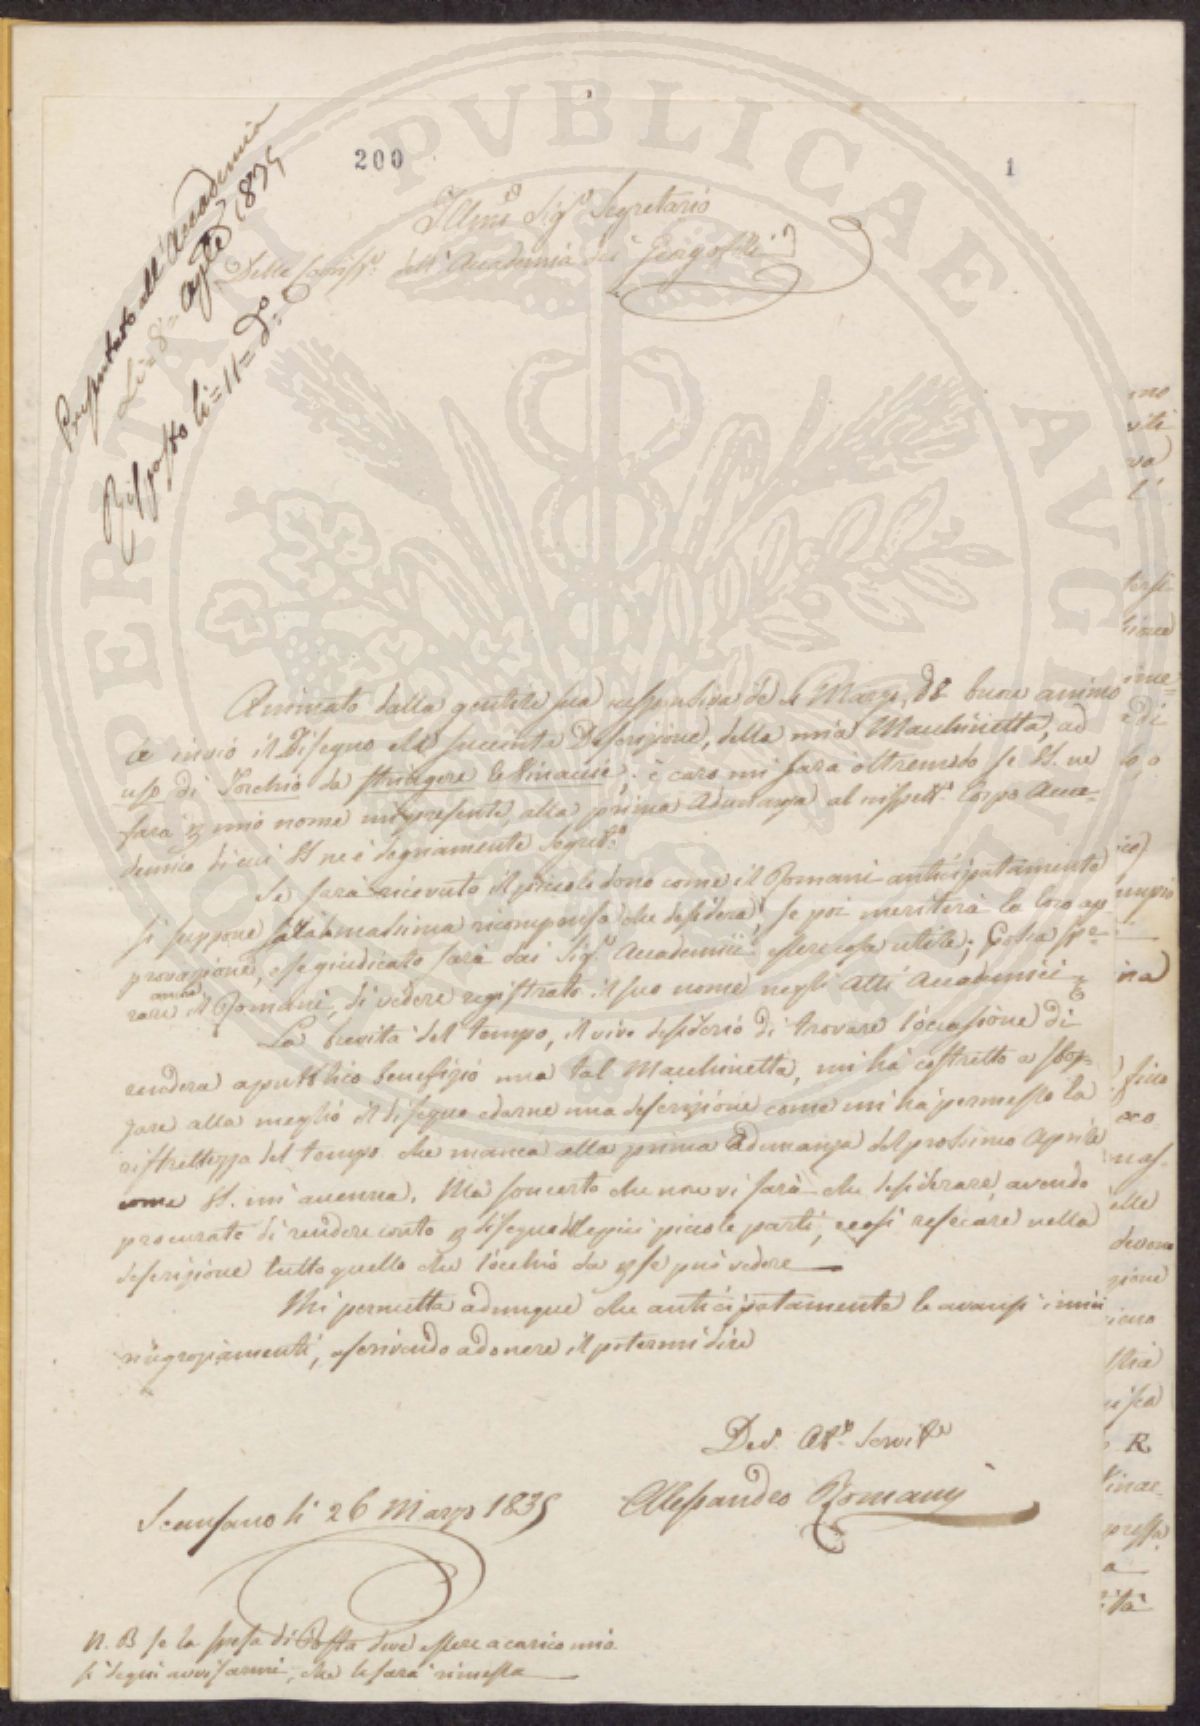 200
1
Presentato all'Accademia
Li = 8 = Aple 1835
Risposto li = 11 = do =
Illmo Sigr Segretario
Delle Corrispe dell'Accademia dei Georgofili
Animato dalla gentile sua responsiva de Marzo, di buon animo
le invio il Disegno e la succinta Descrizione, della mia Macchinetta, ad
uso di Torchio da stringere le Vinaccie: è caro mi sarà oltremodo se VS. ne
farà p mio nome un presente, alla prima Adunanza al rispete Corpo Acca-
demico di cui VS ne è degnamente Segreto
Se sarà ricevuto il piccolo dono come il Romani anticipatamente
si suppone sarà la massima ricompensa che desidera, se poi meriterà la loro ap-
provazione, e se giudicato sarà dai Sigi Accademici essere cosa utile; Potrà spe-
rare anche il Romani, di vedere registrato il suo nome negli Atti Accademici
La brevità del tempo, il vivo desiderio di trovare l'occasione di
rendere a pubblico benefizio una tal Macchinetta, mi hà costretto a sboz-
zare alla meglio il disegno e darne una descrizione come mi hà permesso la
ristrettezza del tempo che manca alla prima Adunanza del prossimo Aprile
come VS. mi accenna. Mà son certo che non vi sarà che desiderare, avendo
procurato di rendere conto p disegno delle più piccole parti, e così referire nella
descrizione tutto quello che l'occhio da p se può vedere
Mi permetta adunque che anticipatamente le avanzi i miei
ringraziamenti, ascrivendo ad onore il potermi dire
Devo Obo Servite
Alessandro Romani
Scansano li 26 Marzo 1835
N. B se la spesa di Posta deve essere a carico mio
si degni avvisarmi, che le sarà rimessa